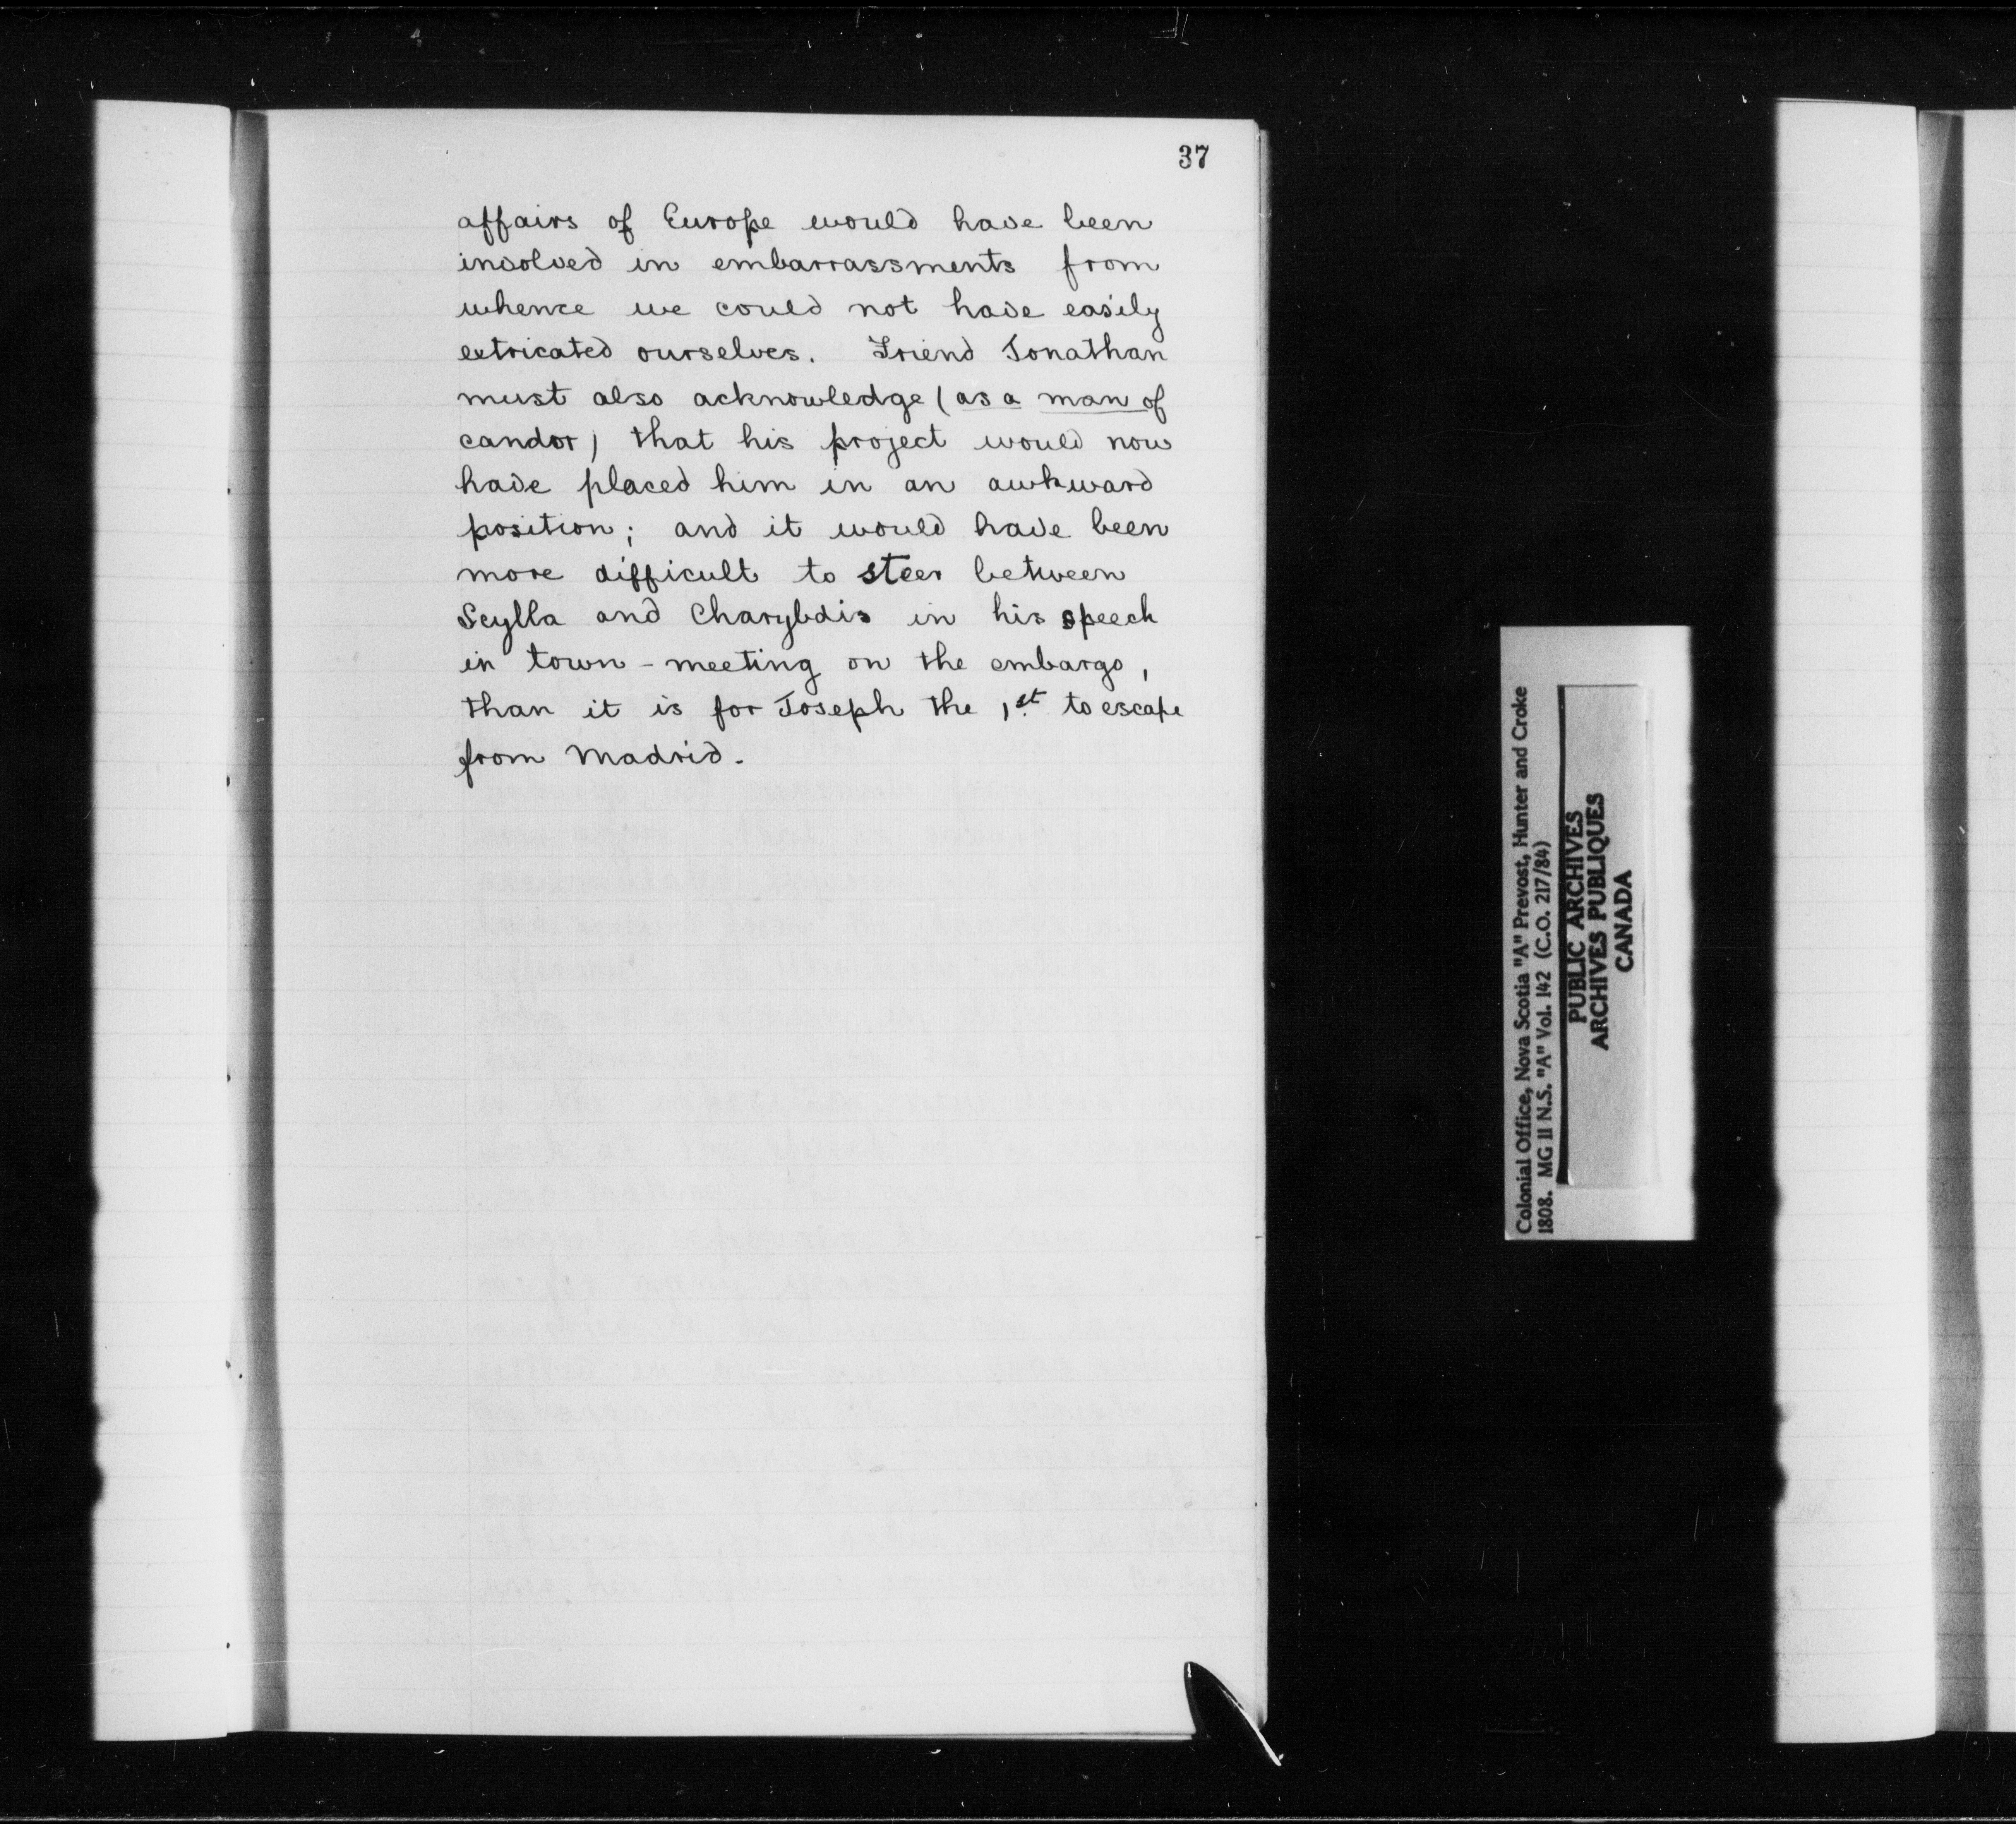 37
affairs of Europe would have been
involved in embarrassments from
whence we could not have easily
extricated ourselves. Friend Jonathan
must also acknowledge (as a man of
candor) that his project would now
have placed him in an awkward
position; and it would have been
more difficult to steer between
Scylla and Charybdis in his speech
in town-meeting on the embargo,
than it is for Joseph the 1st to escape
from Madrid.
Colonial Office, Nova Scotia "A" Prevost, Hunter and Croke
1808. MG 11 N.S. "A" Vol. 142 (C.O. 217/84)
PUBLIC ARCHIVES
ARCHIVES PUBLIQUES
CANADA